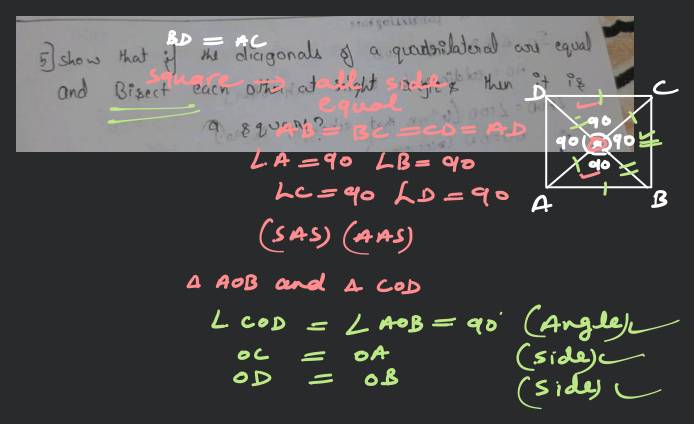 BD = AC
5] Show that if the diagonals of a quadrilateral are equal
and Bisect each other at right angles then it is
a square?
square → all side
equal
AB = BC = CD = AD
∠A = 90 ∠B = 90
∠C = 90 ∠D = 90
(SAS) (AAS)
Δ AOB and Δ COD
∠ COD = ∠ AOB = 90° (Angle)
OC = OA (side)
OD = OB (side)
D C
90
90 90
90
A B